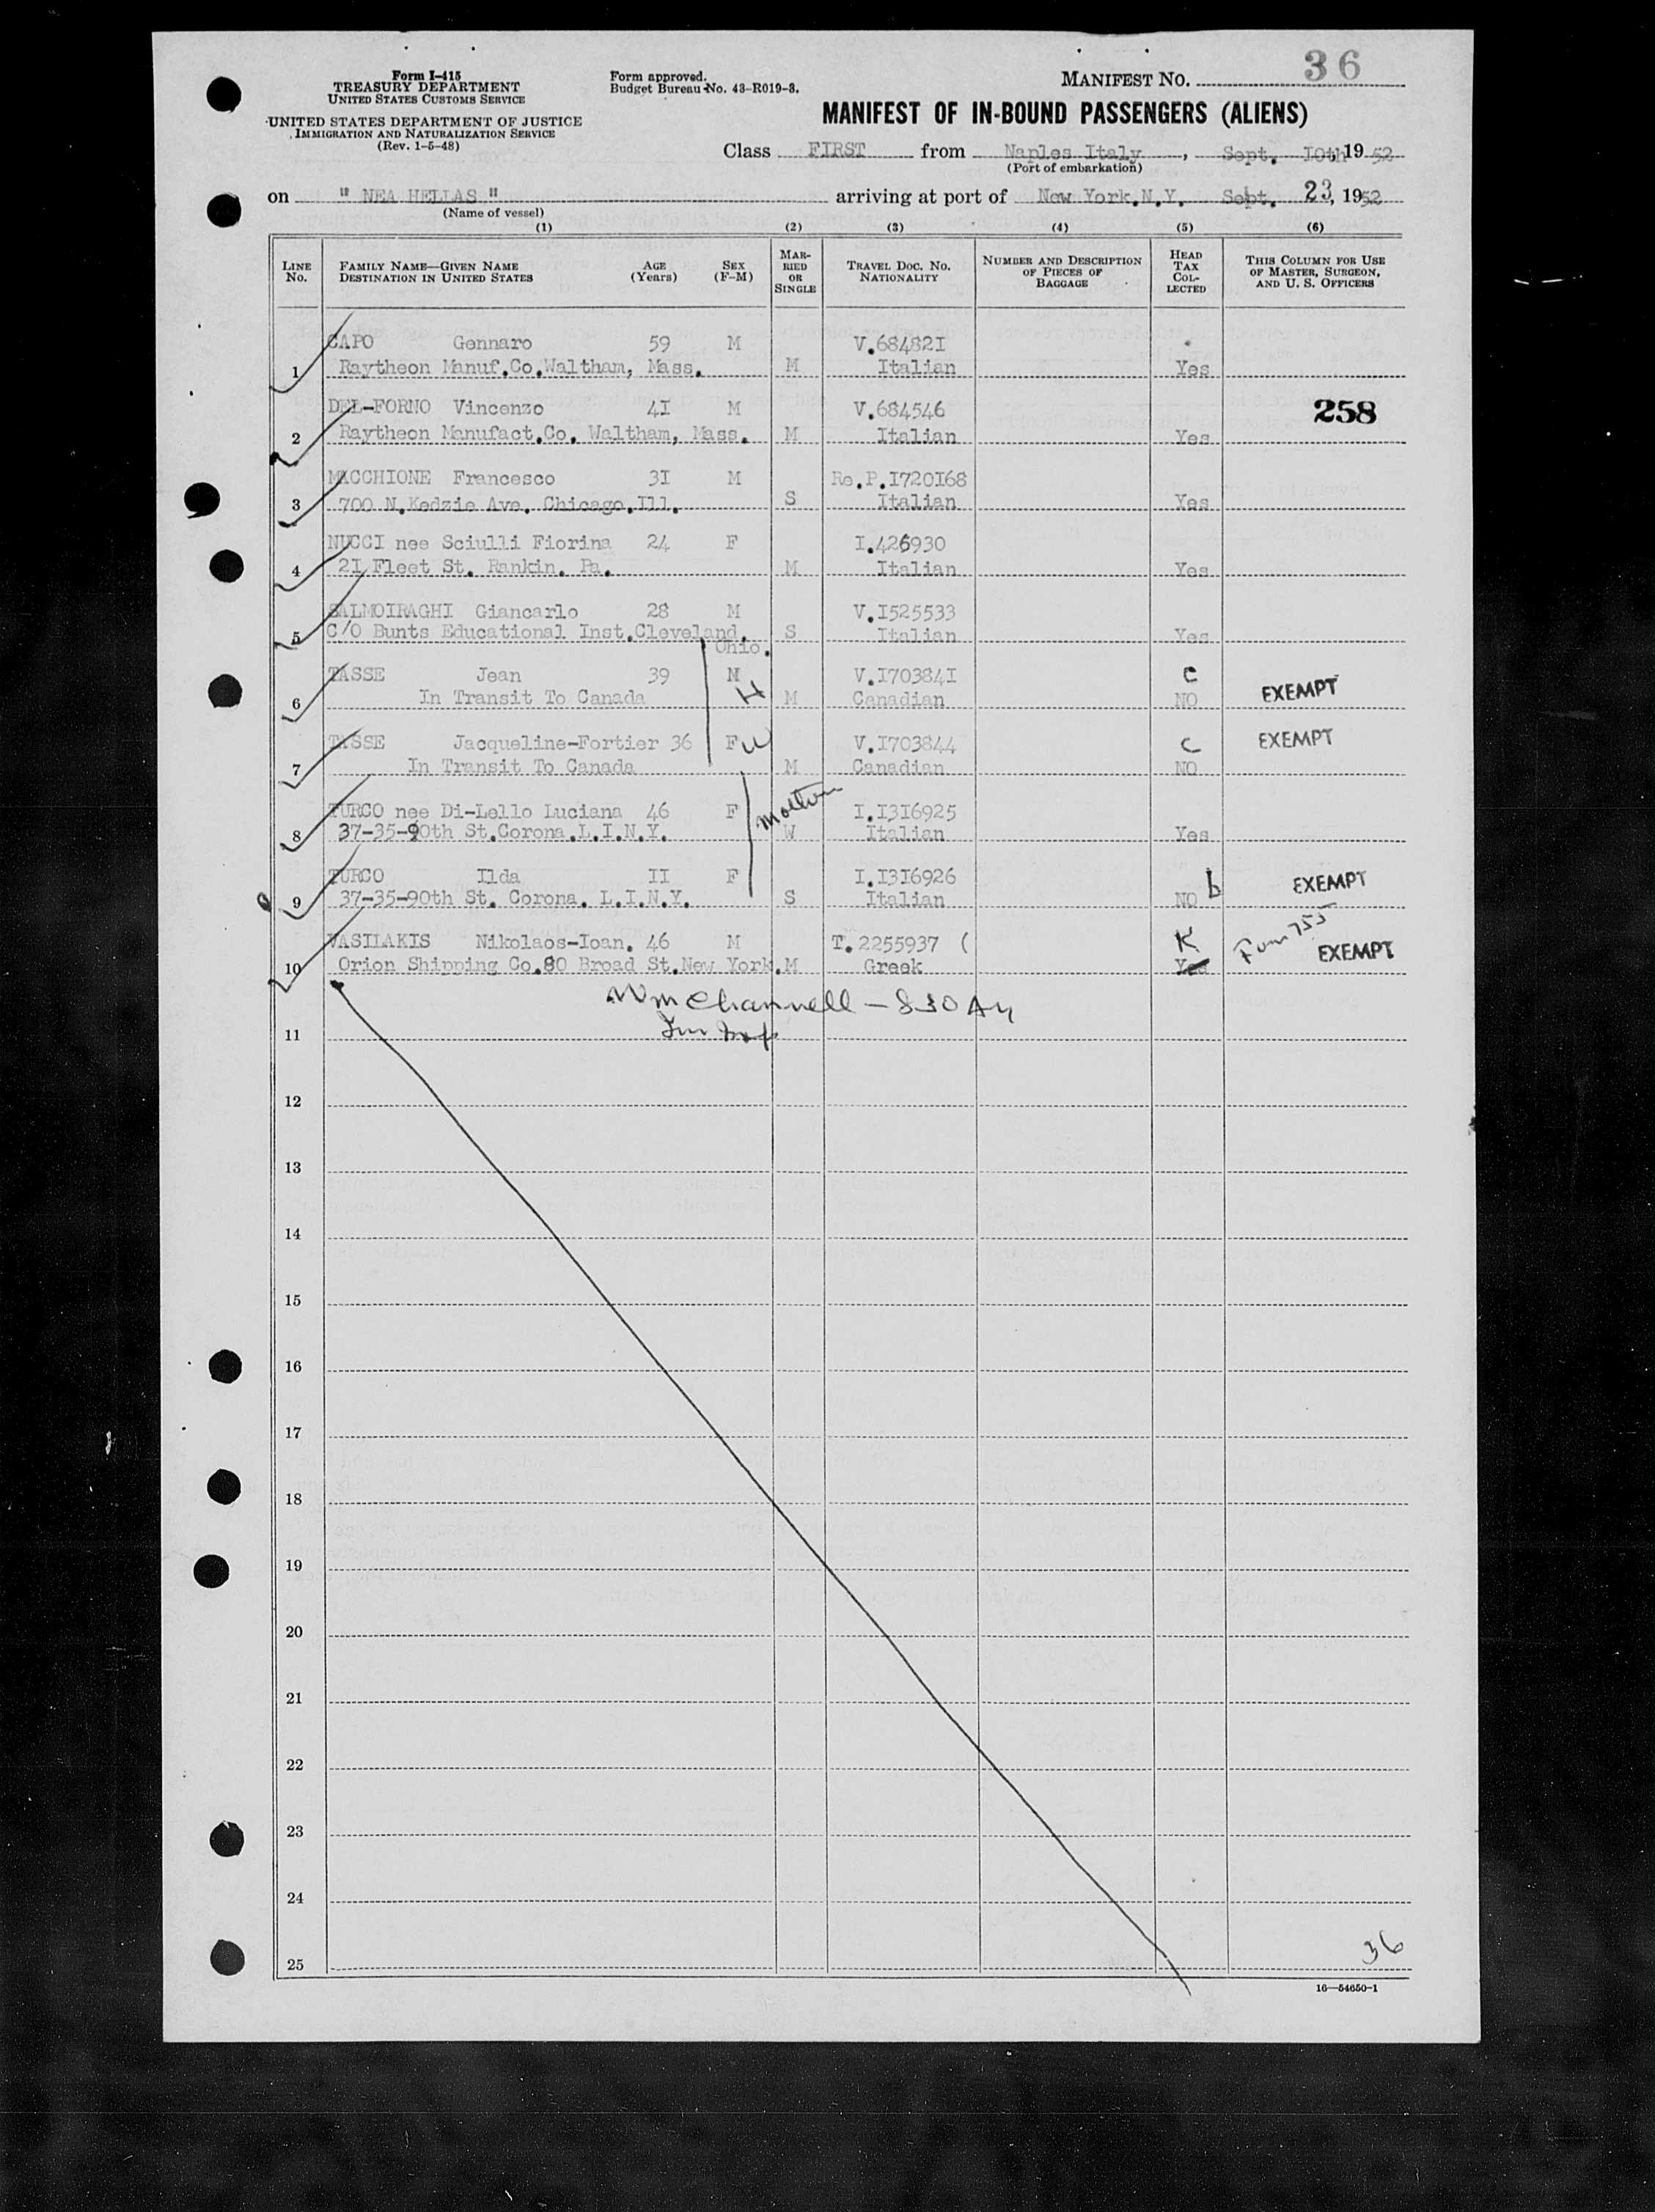 Form I-415
TREASURY DEPARTMENT
UNITED STATES CUSTOMS SERVICE
UNITED STATES DEPARTMENT OF JUSTICE
IMMIGRATION AND NATURALIZATION SERVICE
(Rev. 1-5-48)
Form approved.
Budget Bureau No. 43-R019-3.
MANIFEST NO. 36
MANIFEST OF IN-BOUND PASSENGERS (ALIENS)
Class FIRST from Naples Italy, Sept. I0th, 19 52
(Port of embarkation)
on " NEA HELLAS " arriving at port of New York.N.Y. Sept. 23, 1952
(Name of vessel)
(1) (2) (3) (4) (5) (6)
LINE No.
FAMILY NAME—GIVEN NAME
DESTINATION IN UNITED STATES
AGE (Years)
SEX (F-M)
MARRIED OR SINGLE
TRAVEL DOC. NO. NATIONALITY
NUMBER AND DESCRIPTION OF PIECES OF BAGGAGE
HEAD TAX COLLECTED
THIS COLUMN FOR USE OF MASTER, SURGEON, AND U. S. OFFICERS
CAPO Gennaro 59 M V.68482I
1 Raytheon Manuf.Co.Waltham, Mass. M Italian Yes
DEL-FORNO Vincenzo 4I M V.684546 258
2 Raytheon Manufact.Co. Waltham, Mass. M Italian Yes
MACCHIONE Francesco 3I M Re.P.I720I68
3 700 N.Kedzie Ave. Chicago.Ill. S Italian Yes
NUCCI nee Sciulli Fiorina 24 F I.426930
4 2I Fleet St. Rankin. Pa. M Italian Yes
SALMOIRAGHI Giancarlo 28 M V.I525533
5 C/O Bunts Educational Inst.Cleveland. S Italian Yes
Ohio.
TASSE Jean 39 M V.I70384I C
6 In Transit To Canada H M Canadian NO EXEMPT
TASSE Jacqueline-Fortier 36 F W V.I703844 C EXEMPT
7 In Transit To Canada M Canadian NO
TURCO nee Di-Lello Luciana 46 F Mother I.I3I6925
8 37-35-90th St.Corona.L.I.N.Y. W Italian Yes
TURCO Ilda II F I.I3I6926 b EXEMPT
9 37-35-90th St. Corona. L.I.N.Y. S Italian NO
VASILAKIS Nikolaos-Ioan. 46 M T.2255937 ( K Form 755 EXEMPT
10 Orion Shipping Co.80 Broad St.New York.M Greek Yes
Wm Channell — 830 AM
11
12
13
14
15
16
17
18
19
20
21
22
23
24
25
36
16—54650-1